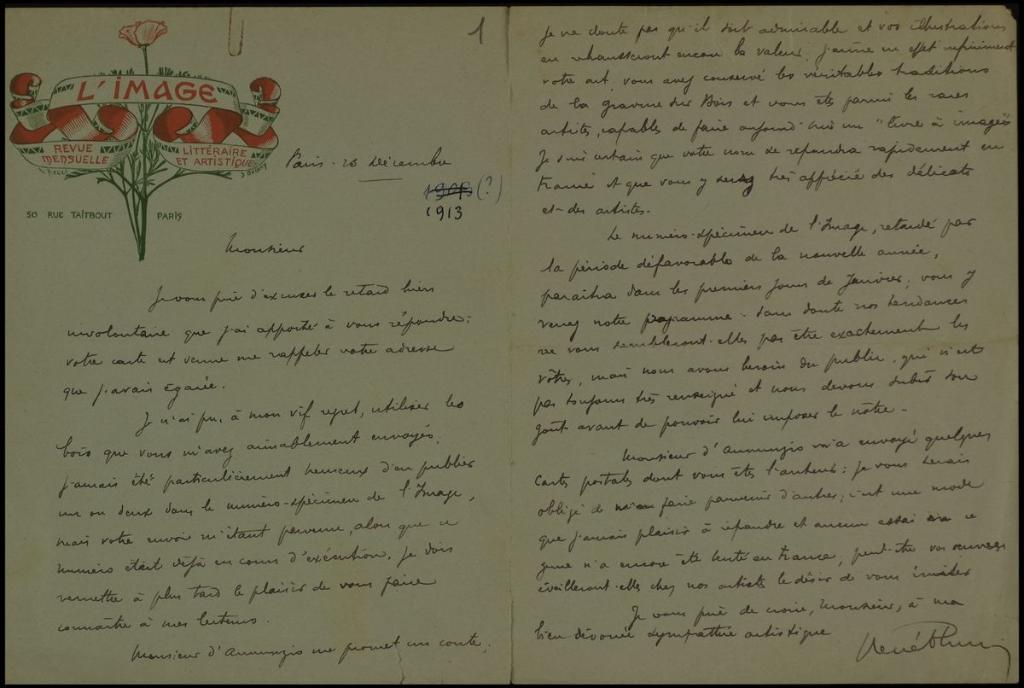 1
L'IMAGE
REVUE MENSUELLE
LITTÉRAIRE ET ARTISTIQUE
50 RUE TAITBOUT PARIS
Paris - 26 Décembre
(?)
1913
Monsieur
Je vous prie d'excuser le retard bien
involontaire que j'ai apporté à vous répondre:
votre carte est venue me rappeler votre adresse
que j'avais égarée.
Je n'ai pu, à mon vif regret, utiliser les
bois que vous m'avez aimablement envoyés;
j'aurais été particulièrement heureux d'en publier
un ou deux dans le numéro-spécimen de l'Image,
mais votre envoi m'étant parvenu, alors que ce
numéro était déjà en cours d'exécution, je dois
remettre à plus tard le plaisir de vous faire
connaître à mes lecteurs.
Monsieur d'Annunzio me promet un conte;
je ne doute pas qu'il soit admirable et vos illustrations
en rehausseront encore la valeur. J'aime en effet infiniment
votre art. vous avez conservé les véritables traditions
de la gravure sur Bois et vous êtes parmi les rares
artistes, capables de faire aujourd'hui un "livre à images"
Je suis certain que votre nom se répandra rapidement en
France et que vous y serez très apprécié des délicats
et des artistes.
Le numéro-spécimen de l'Image, retardé par
la période défavorable de la nouvelle année,
paraîtra dans les premiers jours de Janvier; vous y
verrez notre programme. Sans doute nos tendances
ne vous sembleront-elles pas être exactement les
vôtres, mais nous avons besoin du public, qui n'est
pas toujours très renseigné et nous devons subir son
goût avant de pouvoir lui imposer le nôtre.
Monsieur d'Annunzio m'a envoyé quelques
cartes postales dont vous êtes l'auteur: je vous serais
obligé de m'en faire parvenir d'autres; c'est une mode
que j'aurais plaisir à répandre et aucun essai en ce
genre n'a encore été tenté en France, peut-être vos ouvrages
éveilleront-elles chez nos artistes le désir de vous imiter
Je vous prie de croire, Monsieur, à ma
bien dévouée sympathie artistique
René Blum